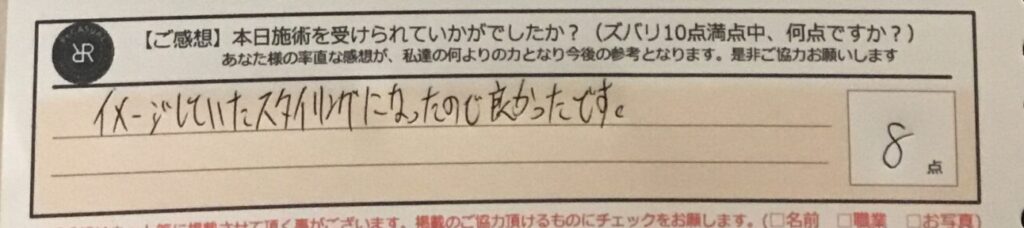 【ご感想】本日施術を受けられていかがでしたか？（ズバリ10点満点中、何点ですか？）
あなた様の率直な感想が、私達の何よりの力となり今後の参考となります。是非ご協力お願いします
イメージしていたスタイリングになったので良かったです。
8点
に掲載させて頂く事がございます。掲載のご協力頂けるものにチェックをお願します。(□名前 □職業 □お写真)